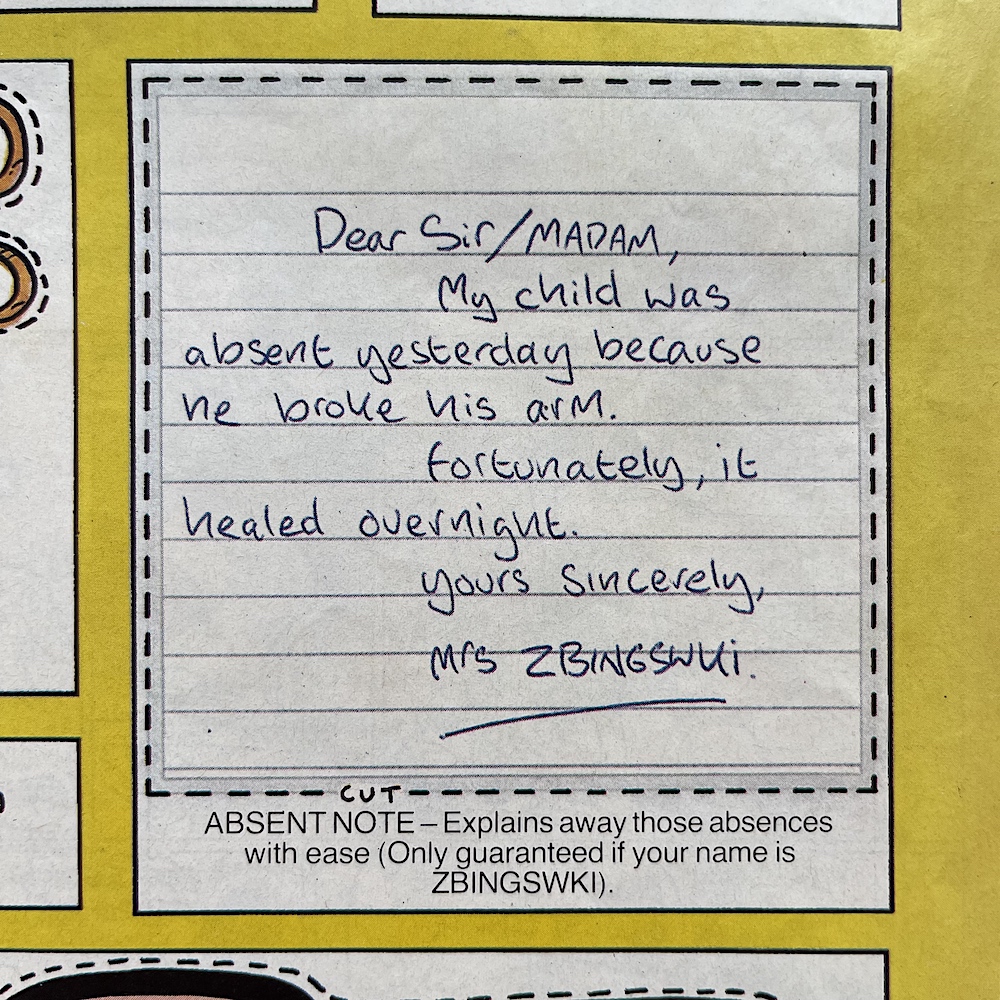 Dear Sir/MADAM,
My child was
absent yesterday because
he broke his arm.
Fortunately, it
healed overnight.
yours sincerely,
Mrs ZBINGSWKi.
CUT
ABSENT NOTE – Explains away those absences
with ease (Only guaranteed if your name is
ZBINGSWKI).